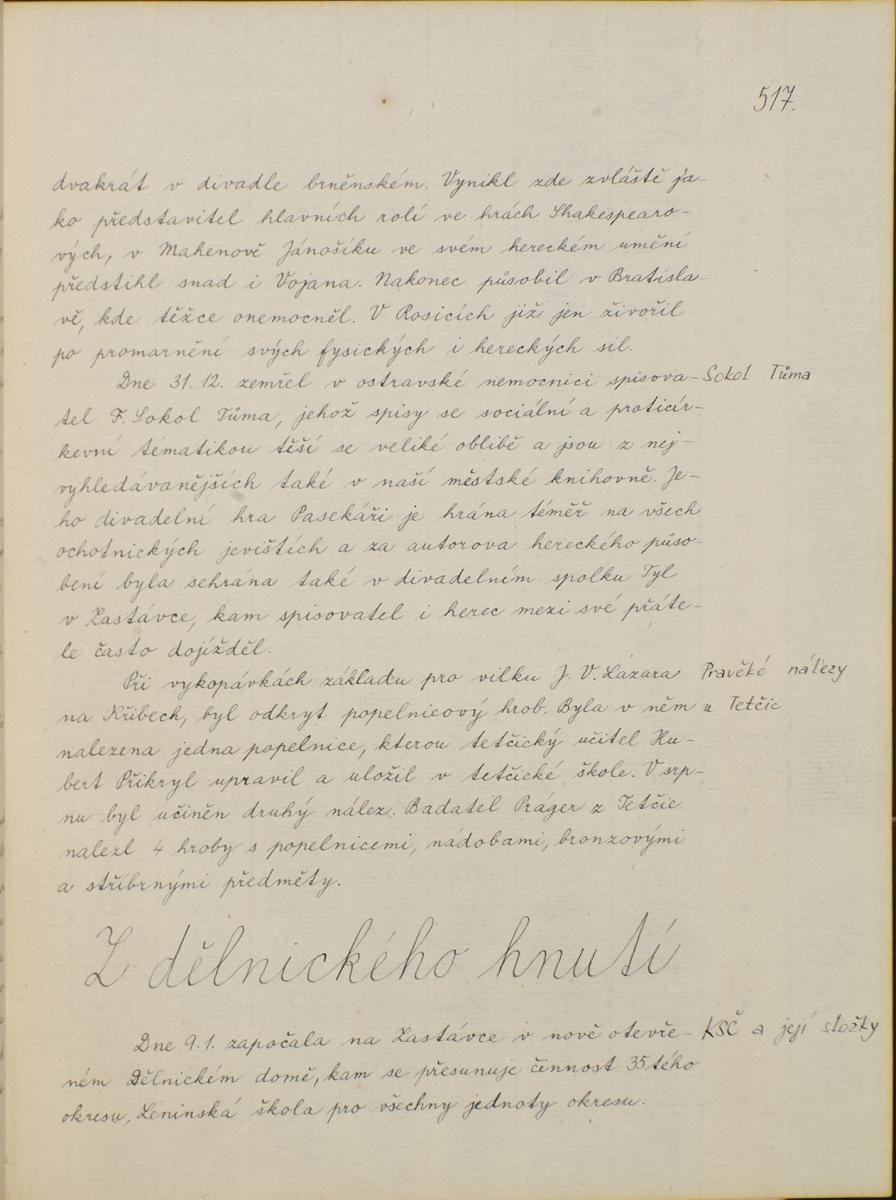 517.
dvakrát v divadle brněnském. Vynikl zde zvláště ja-
ko představitel hlavních rolí ve hrách Shakespearo-
vých, v Mahenově Jánošíku ve svém hereckém umění
předstihl snad i Vojana. Nakonec působil v Bratisla-
vě, kde těžce onemocněl. V Rosicích již jen živořil
po promarnění svých fysických i hereckých sil.
Dne 31.12. zemřel v ostravské nemocnici spisova- Sokol Tůma
tel F. Sokol Tůma, jehož spisy se sociální a proticír-
kevní tématikou těší se veliké oblibě a jsou z nej-
vyhledávanějších také v naší městské knihovně. Je-
ho divadelní hra Pasekáři je hrána téměř na všech
ochotnických jevištích a za autorova hereckého půso-
bení byla sehrána také v divadelním spolku Tyl
v Zastávce, kam spisovatel i herec mezi své přáte-
le často dojížděl.
Při vykopávkách základu pro vilku J. V. Lázara Pravěké nálezy
na Křibech, byl odkryt popelnicový hrob. Byla v něm u Tetčic
nalezena jedna popelnice, kterou tetčický učitel Hu-
bert Přikryl upravil a uložil v tetčické škole. V srp-
nu byl učiněn druhý nález. Badatel Práger z Tetčic
nalezl 4 hroby s popelnicemi, nádobami, bronzovými
a stříbrnými předměty.
Z dělnického hnutí
Dne 9.1. započala na Zastávce v nově otevře- KSČ a její složky
ném Dělnickém domě, kam se přesunuje činnost 35tého
okresu, Leninská škola pro všechny jednoty okresu.